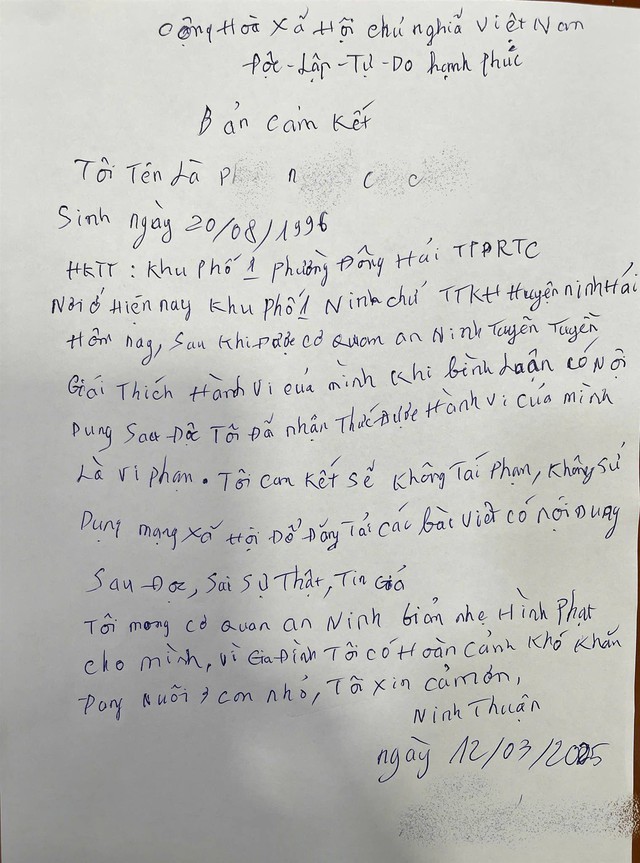 Cộng Hoà Xã Hội chủ nghĩa Việt Nam
Độc-Lập-Tự-Do hạnh phúc
Bản cam kết
Tôi Tên Là
Sinh ngày 20/08/1996
HKTT : Khu phố 1 phường Đông Hải TPPRTC
Nơi ở Hiện nay Khu phố 1 Ninh chữ TTKH Huyện ninh Hải
Hôm nay, Sau Khi Được cơ quan an Ninh Tuyên Tuyền
Giải Thích Hành Vi của mình Khi bình Luận có Nội
Dung Sau Độc Tôi Đã nhận Thức Được Hành vi của mình
Là vi phạn. Tôi Cam Kết Sẽ Không Tái Phạn, Không Sử
Dụng mạng xã Hội Để Đăng Tải các bài viết có nội Dung
Sau Đọc, Sai Sự Thật, Tin Giả
Tôi mong cơ quan an Ninh giản nhẹ Hình Phạt
cho mình, vì Gia Đình Tôi có Hoàn cảnh Khó Khăn
Đang Nuôi 3 con nhỏ, Tôi xin cảm ơn,
Ninh Thuận
ngày 12/03/2025